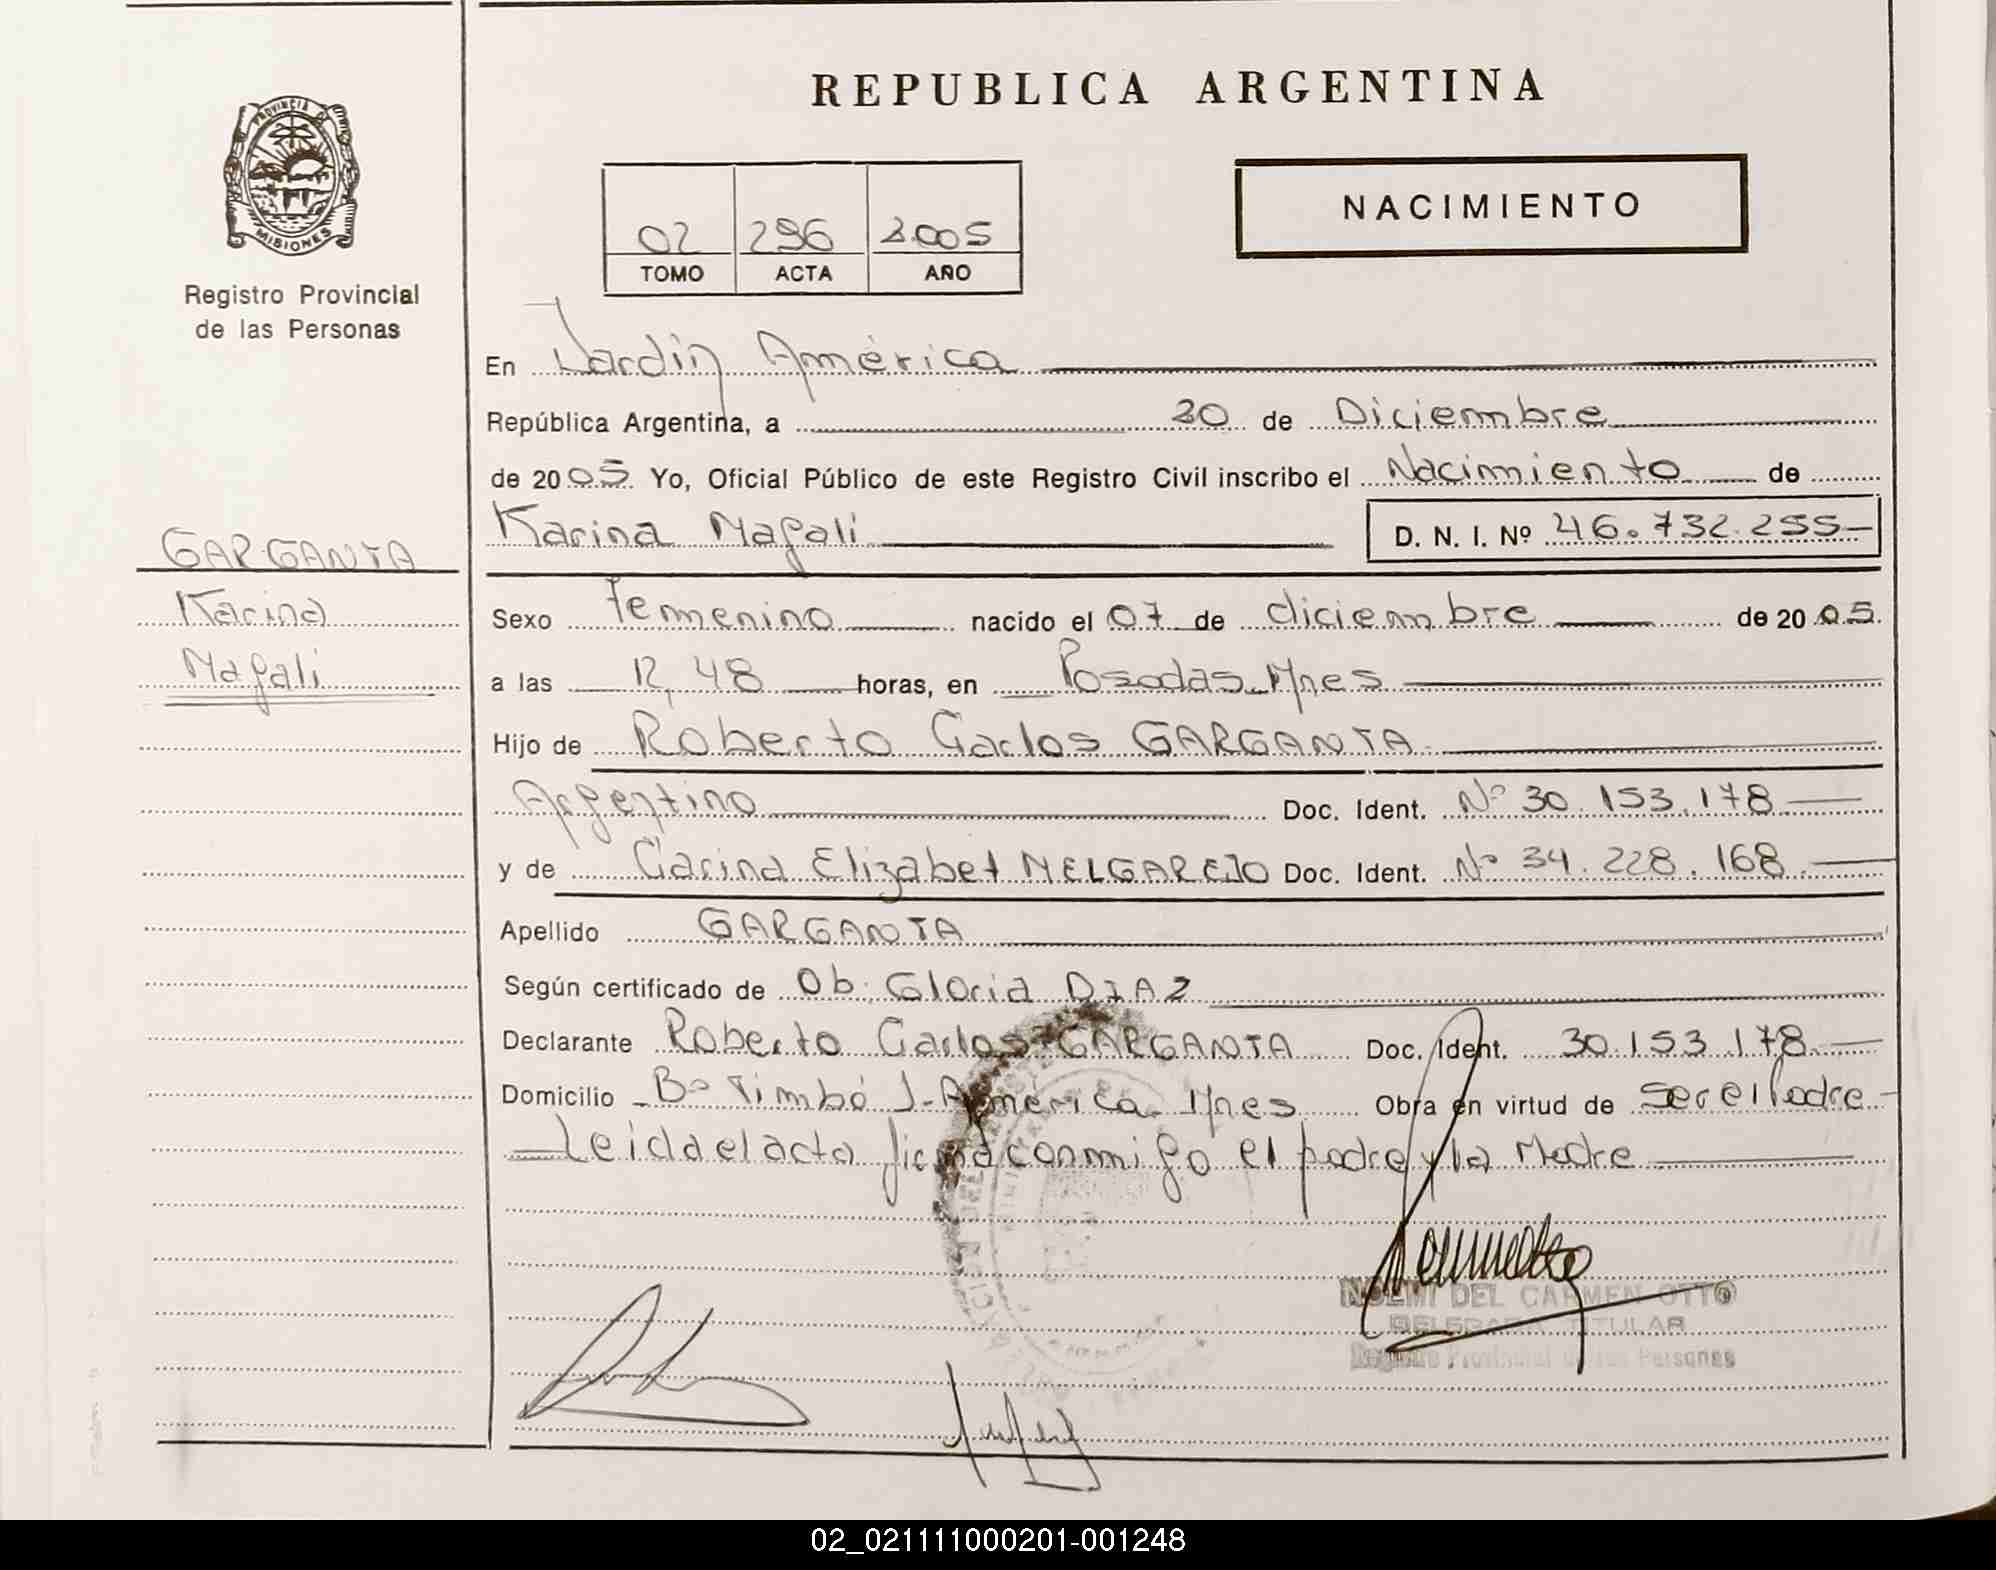 REPUBLICA ARGENTINA
PROVINCIA DE
MISIONES
Registro Provincial
de las Personas
NACIMIENTO
02 296 2.005
TOMO ACTA AÑO
En Jardín América
República Argentina, a 20 de Diciembre
de 2005 Yo, Oficial Público de este Registro Civil inscribo el Nacimiento de
Karina Magali D. N. I. Nº 46.732.255
GARGANTA
Karina
Magali
Sexo Femenino nacido el 07 de diciembre de 2005
a las 12,48 horas, en Posadas Mnes
Hijo de Roberto Carlos GARGANTA
Argentino Doc. Ident. Nº 30.153.178
y de Carina Elizabet MELGAREJO Doc. Ident. Nº 34.228.168
Apellido GARGANTA
Según certificado de Ob. Gloria DIAZ
Declarante Roberto Carlos GARGANTA Doc. Ident. 30.153.178
Domicilio Bº Timbó J. América Mnes Obra en virtud de ser el Padre
Leida el acta firma conmigo el padre y la Madre
NOEMI DEL CARMEN OTTO
DELEGADA TITULAR
Registro Provincial de las Personas
02_021111000201-001248